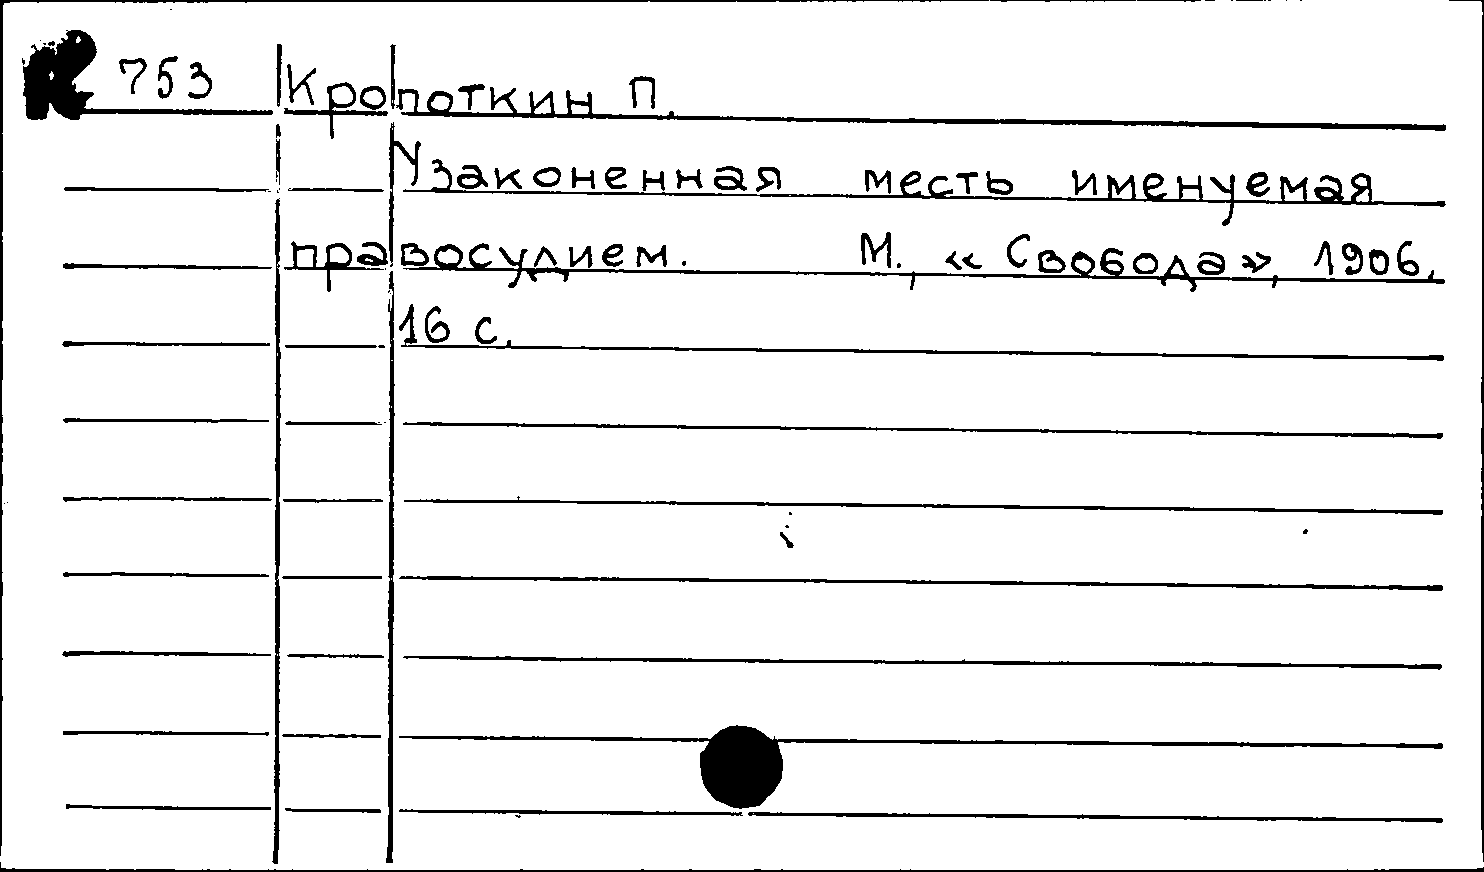 К 753 Кропоткин П.
Узаконенная месть именуемая
правосудием. М., «Свобода», 1906.
16 с.